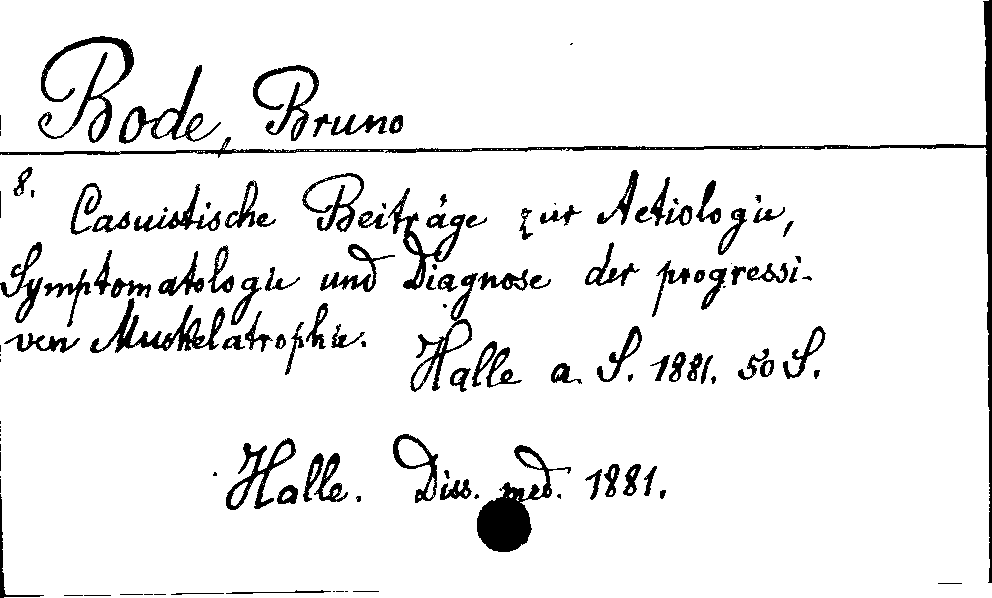 Bode, Bruno
8.
Casuistische Beiträge zur Aetiologie,
Symptomatologie und Diagnose der progressi-
ven Muskelatrophie.
Halle a. S. 1881. 50 S.
Halle. Diss. med. 1881.